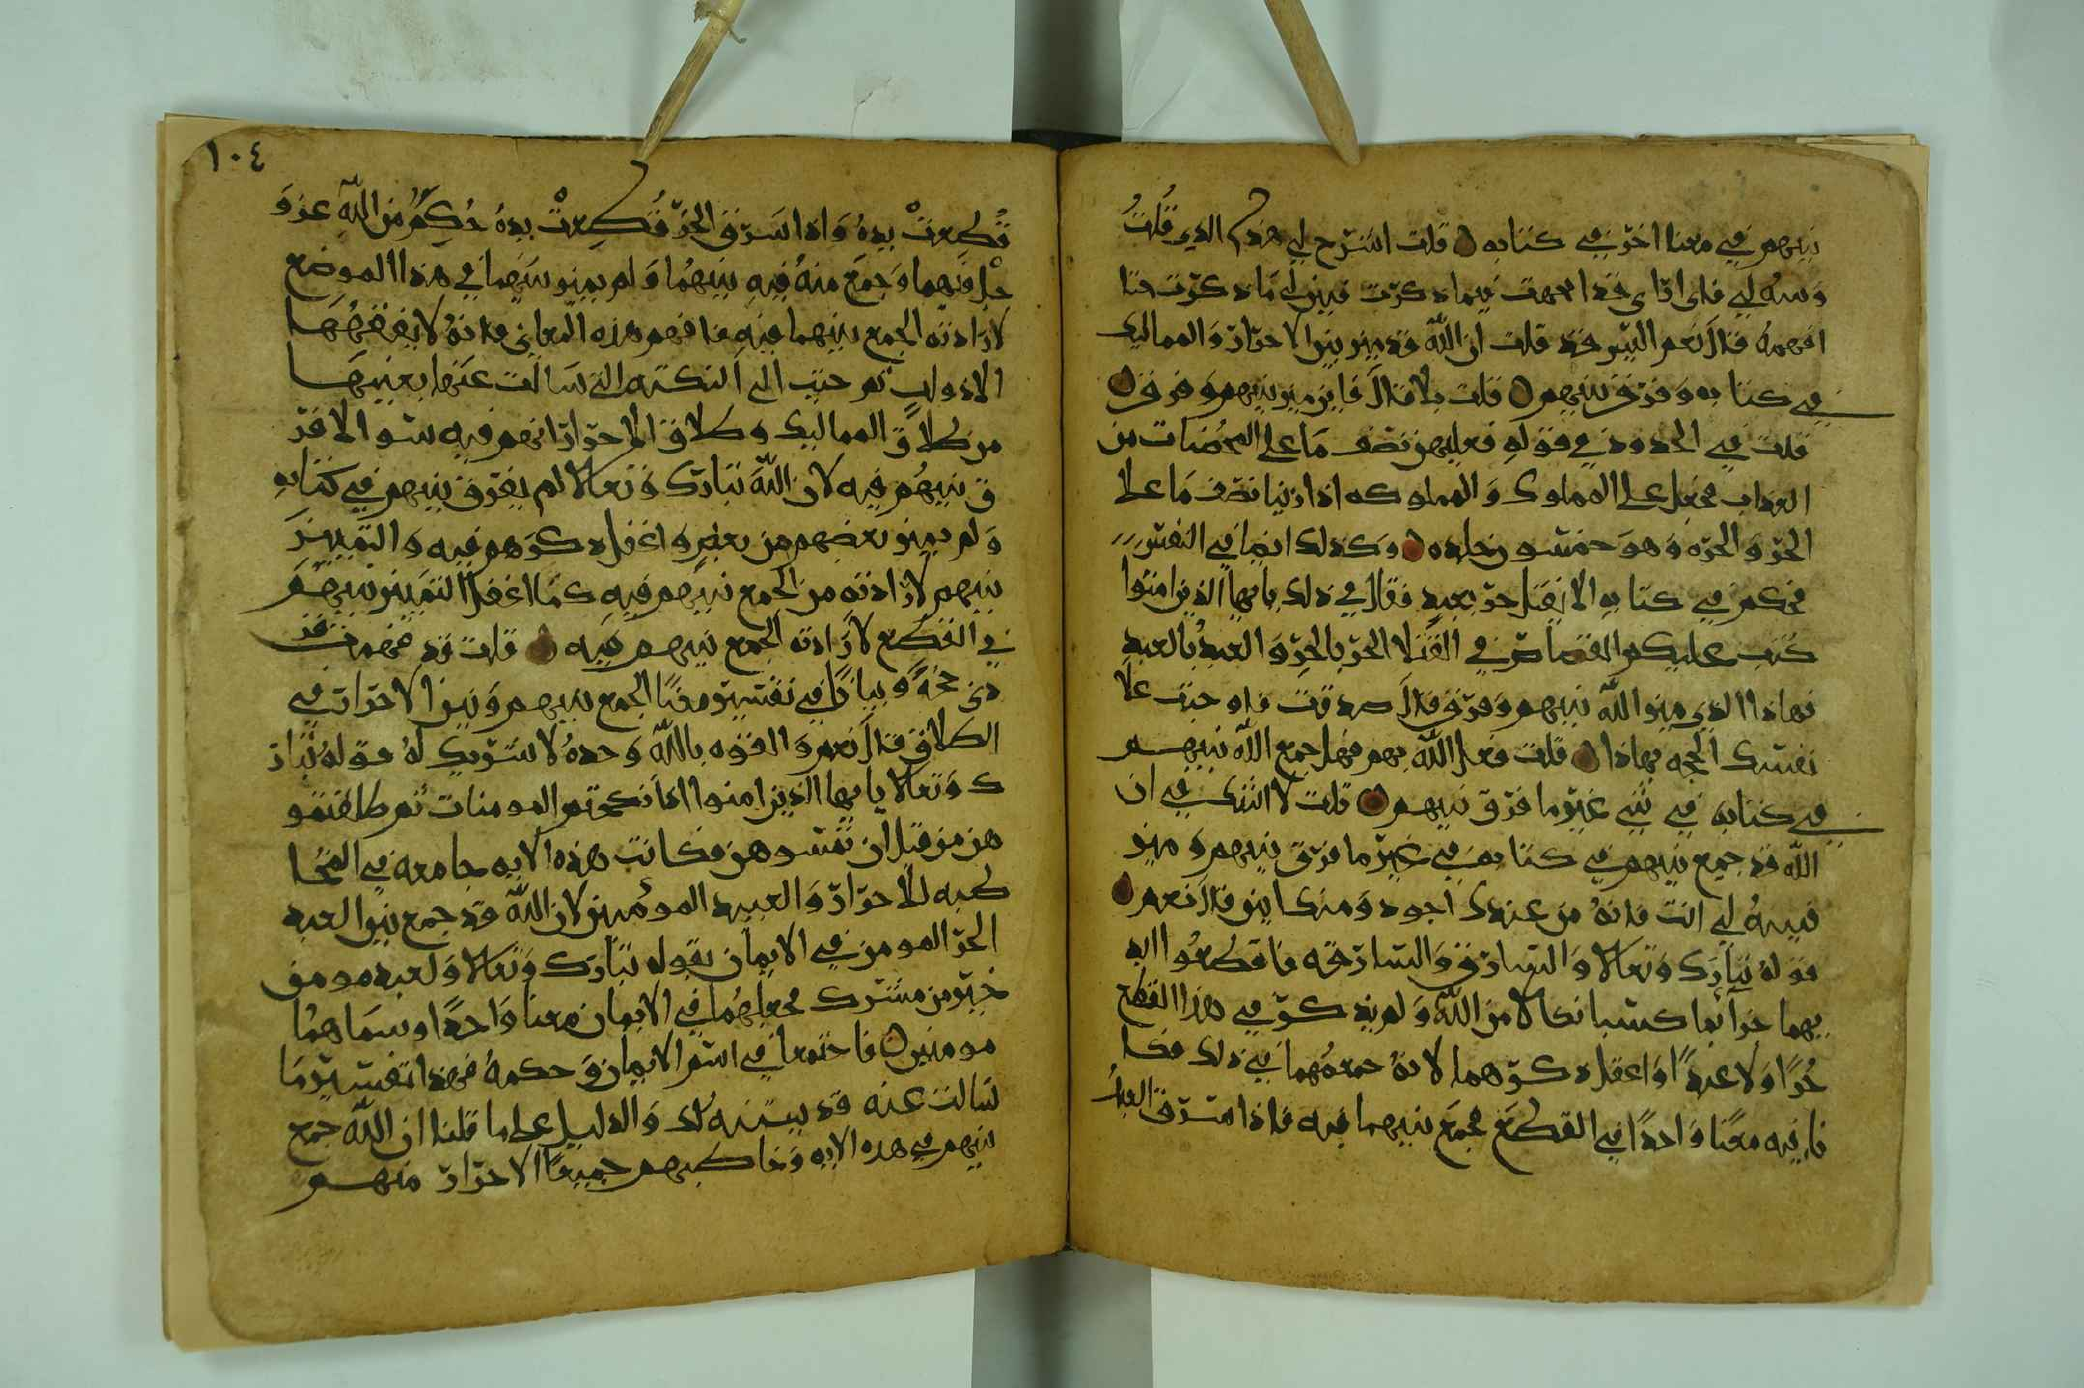 بينهم في معنا اخر في كتابه قلت اشرح لي هذا الذي قلت
وبينه لي فاني اراى قد ابهمت فيما ذكرت فبين لي ما ذكرت حتا
افهمه قال نعم اليس قد قلت ان الله قد ميز بين الاحرار والمماليك
في كتابه وفرق بينهم قلت بلا قال فاين ميز بينهم وفرق
قلت في الحدود في قوله فعليهن نصف ما على المحصنات من
العذاب فجعل على المملوك والمملوكه اذا زنيا نصف ما على
الحر والحره وهو خمسون جلده وكذلك ايضا في النفس
فحكم في كتابه الا يقتل حر بعبد فقال في ذلك يايها الذين امنوا
كتب عليكم القصاص في القتلا الحر بالحر والعبد بالعبد
فهاذا الذي ميز الله بينهم وفرق قال صدقت فاوجبت علا
نفسك الحجه بهاذا قلت فعل الله بهم فهل جمع الله بينهم
في كتابه في شي غير ما فرق بينهم قلت لا اشك في ان
الله قد جمع بينهم في كتابه في غير ما فرق بينهم وميز
فبينه لي انت فانه من عندك اجود ومنك ابين قال نعم
قوله تبارك وتعالا والسارق والسارقه فاقطعوا ايد
يهما جزآ بما كسبا نكالا من الله ولم يذكر في هذا القطع
حرا ولا عبدا واغفل ذكرهما لانه جمعهما في ذلك فكا
نا فيه معنا واحدا في القطع فجمع بينهما فيه فاذا سرق العبد
١٠٤
قطعت يده واذا سرق الحر قطعت يده حكم من الله عز و
جل فيهما وجمع منه فيه بينهما ولم يميز بينهما في هذا الموضع
لارادته الجمع بينهما فيه فافهم هذه المعاني فانه لا يفقهها
الا ذو لب ثم جئت الى النكته التي سالت عنها بعينها
من طلاق المماليك وطلاق الاحرار انهم فيه سوا لا فر
ق بينهم فيه لان الله تبارك وتعالا لم يفرق بينهم في كتابه
ولم يميز بعضهم من بعض واغفل ذكرهم فيه والتمييز
بينهم لارادته من الجمع بينهم فيه كما اغفل التمييز بينهم
في القطع لارادته الجمع بينهم فيه قلت قد فهمت فز
دني حجة وبيانا في تفسير معنا الجمع بينهم وبين الاحرار في
الطلاق قال نعم والقوه بالله وحده لا شريك له قوله تبار
ك وتعالا يايها الذين امنوا اذا نكحتم المومنات ثم طلقتمو
هن من قبل ان تمسوهن فكانت هذه الايه جامعه في المخا
طبه للاحرار والعبيد المومنين لان الله قد جمع بين العبد
الحر المومن في الايمان بقوله تبارك وتعالا ولعبد مومن
خير من مشرك فجعلهما في الايمان معنا واحدا وسماهما
مومنين فاجتمعا في اسم الايمان وحكمه فهذا تفسير ما
سالت عنه قد بينته لك والدليل على ما قلنا ان الله جمع
بينهم في هذه الايه وخاطبهم جميعا الاحرار منهم